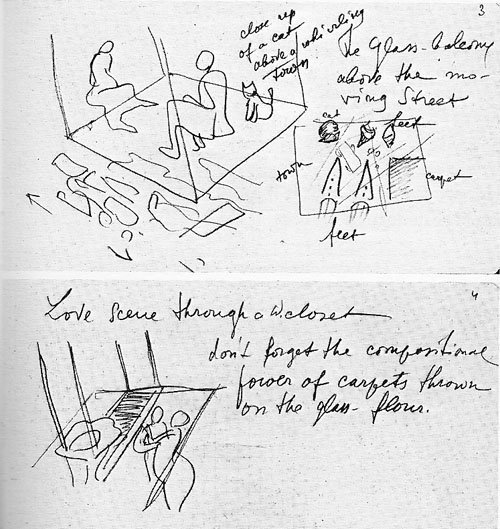 3
close up
of a cat
above a whirling
town
The Glass-balcony
above the mo-
ving Street
cat
feet
town
carpet
feet
4
Love scene through a W.closet
don't forget the compositional
power of carpets thrown
on the glass-flour.